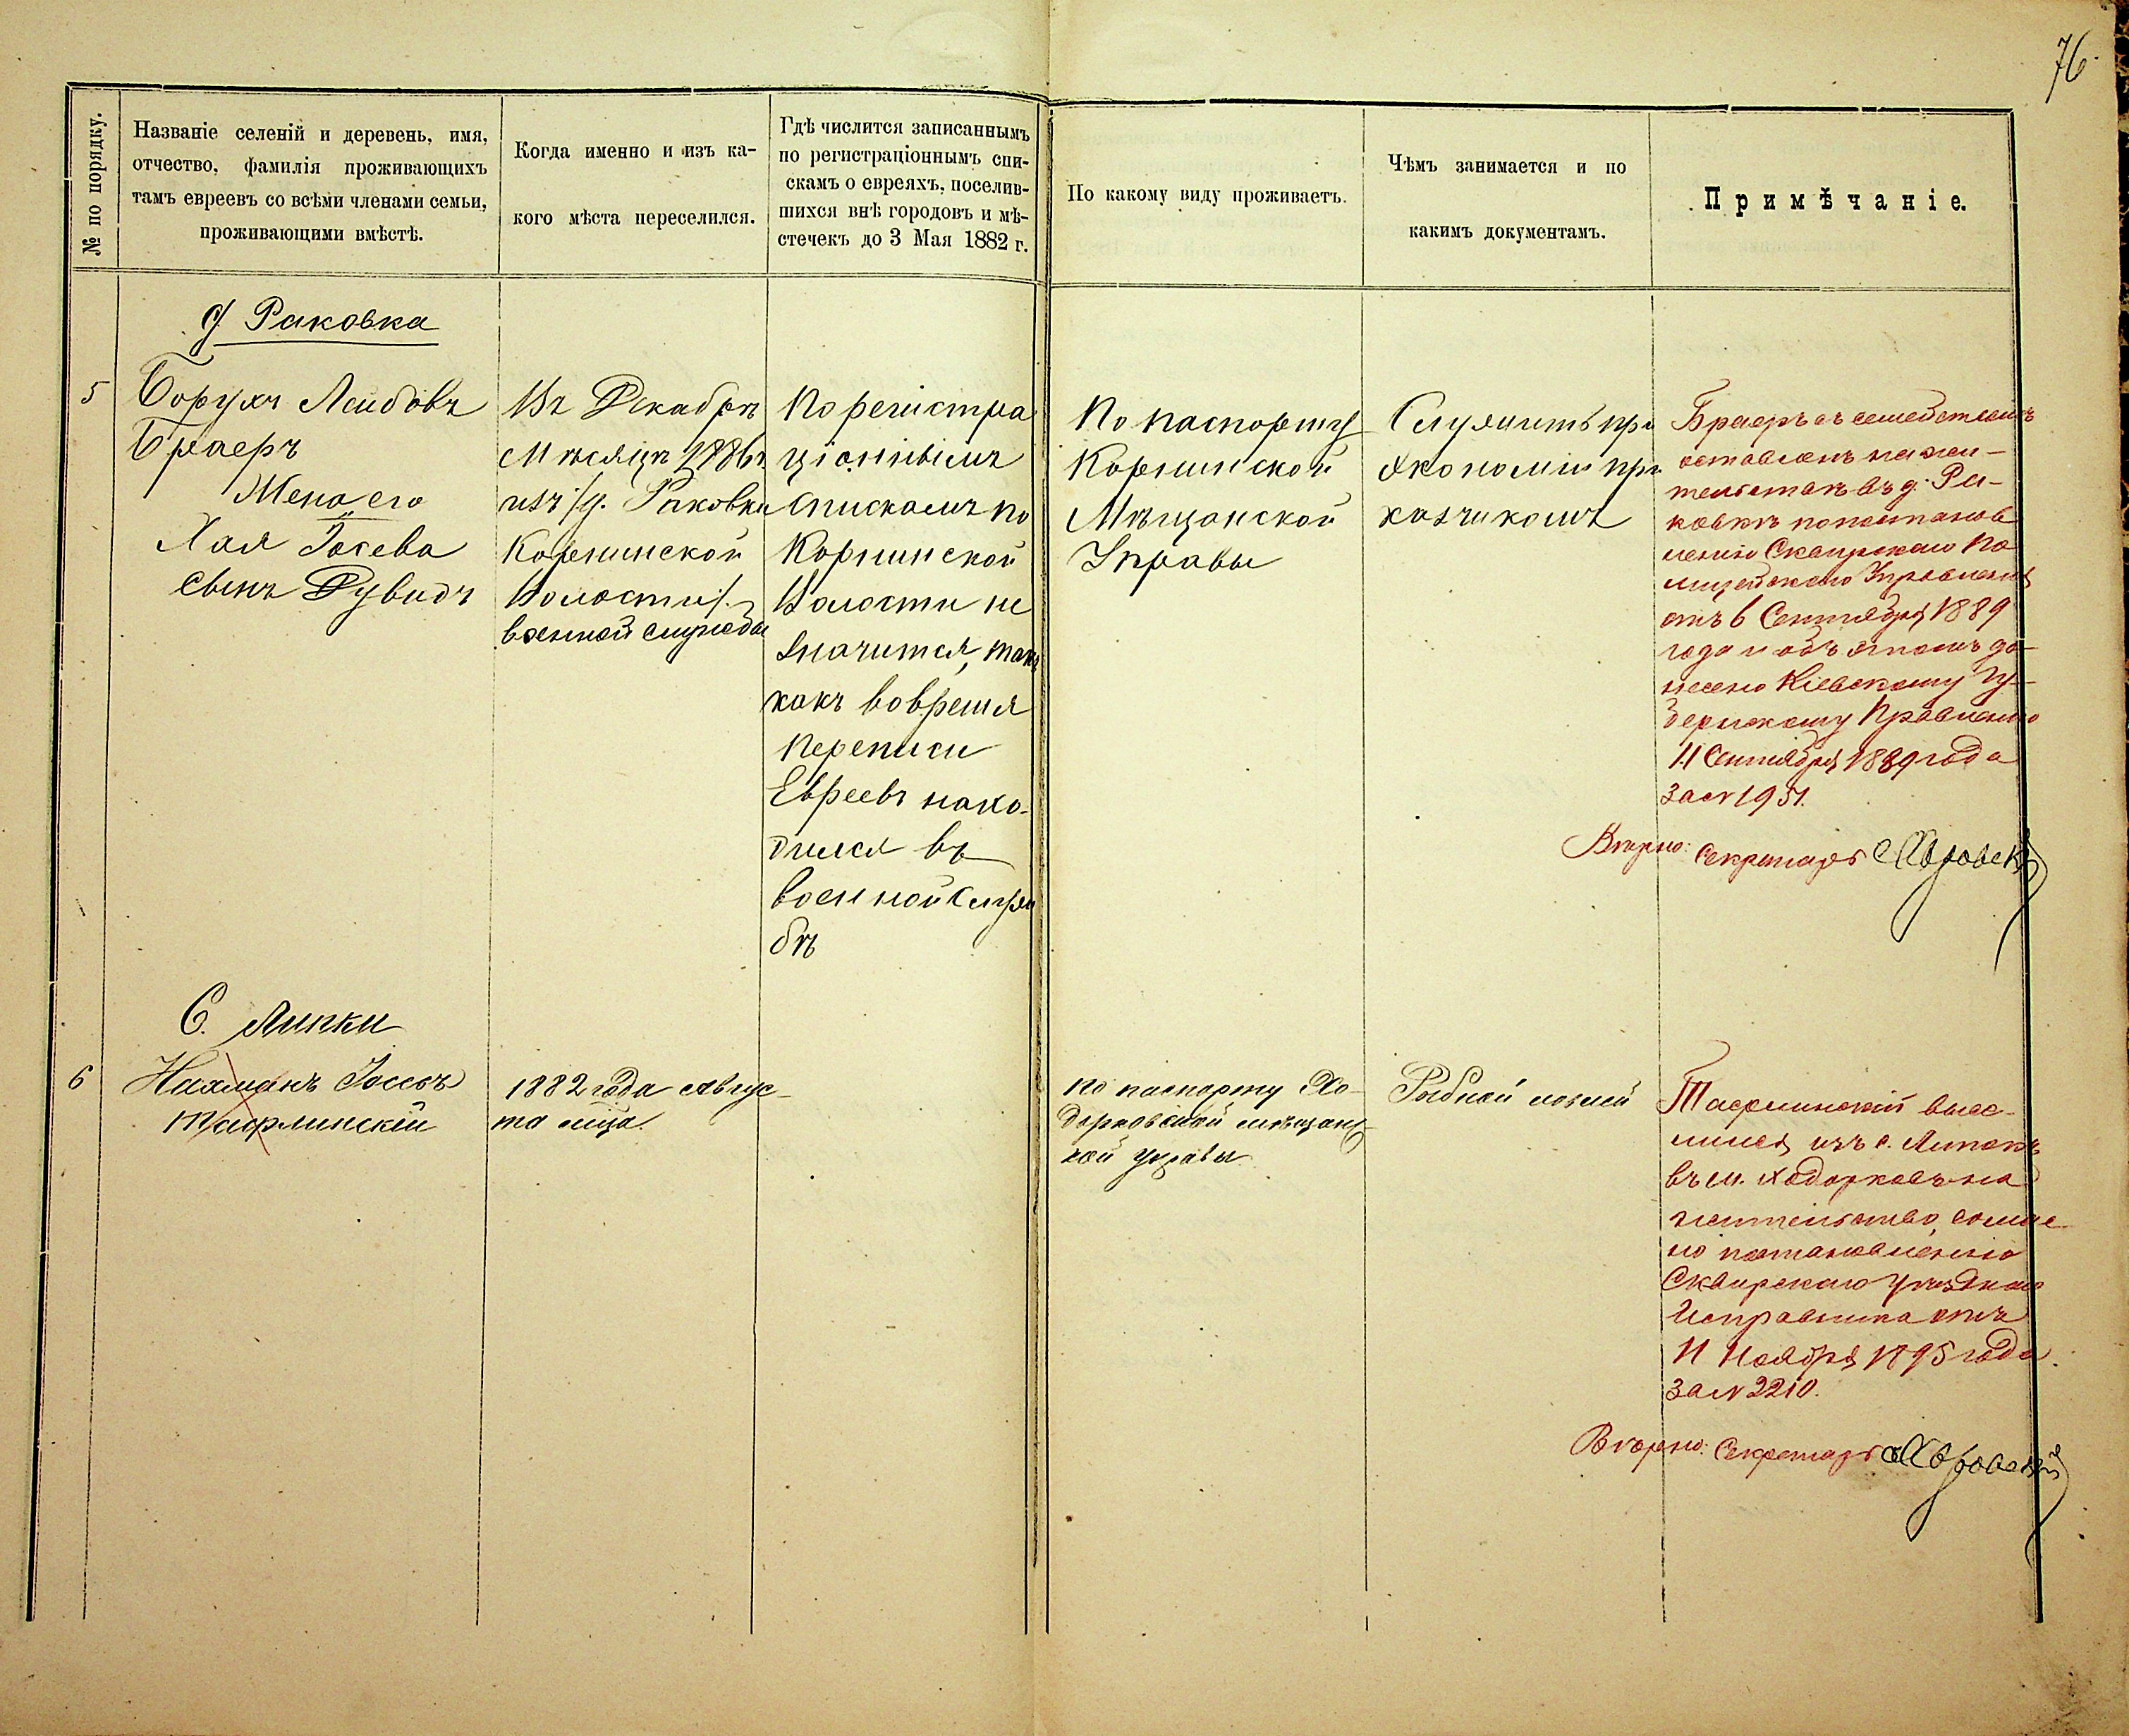 76.
№ по порядку.
Названіе селеній и деревень, имя,
отчество, фамилія проживающихъ
тамъ евреевъ со всѣми членами семьи,
проживающими вмѣстѣ.
Когда именно и изъ ка-
кого мѣста переселился.
Гдѣ числится записаннымъ
по регистраціоннымъ спи-
скамъ о евреяхъ, поселив-
шихся внѣ городовъ и мѣ-
стечекъ до 3 Мая 1882 г.
По какому виду проживаетъ.
Чѣмъ занимается и по
какимъ документамъ.
Примѣчаніе.
д. Раковка
5
Борухъ Леибовъ
Браеръ
Жена его
Хая Іосева
сынъ Дувидъ
Въ Декабрѣ
Мѣсяцѣ 1886 г
изъ /д. Раковки
Корнинской
Волости/. съ
военной службы
По регистра
ціоннымъ
спискамъ по
Корнинской
Волости не
значится, такъ
какъ вовремя
переписи
Евреевъ нахо-
дился въ
военной служ
бѣ
По паспорту
Корнинской
Мѣщанской
Управы
Служитъ при
экономіи при
казчикомъ
Браеръ съ семействомъ
оставленъ на жи-
тельствѣ въ д. Ра-
ковкѣ по постанов
ленію Сквирскаго По
лицейскаго Управленія
отъ 6 Сентября 1889
года и объ этомъ до-
несено Кіевскому Гу-
бернскому Правленію
11 Сентября 1889 года
за № 1951.
Вѣрно: Секретарь
С. Липки
6
Нахманъ Іосевъ
Тафлинскій
1882 года Авгус-
та м-ца
по паспорту Хо-
дорковской мѣщанс-
кой управы
Рыбной ловлей
Тафлинскій высе-
лился изъ с. Липокъ
въ м. Ходорковъ на
жительство, соглас-
но постановленію
Сквирскаго Уѣзднаго
Исправника отъ
11 Ноября 1895 года
за № 2210.
Вѣрно: Секретарь